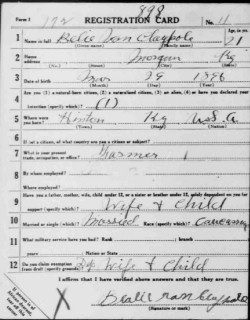 898
Form 1 172 REGISTRATION CARD No. 11
1 Name in full Age, in yrs. 21
(Given name) (Family name)
2 Home address Morgan Ky
(No.) (Street) (City) (State)
3 Date of birth 29 1896
(Month) (Day) (Year)
4 Are you (1) a natural-born citizen, (2) a naturalized citizen, (3) an alien, (4) or have you declared your
intention (specify which)? (1)
5 Where were you born? Hinton Ky U.S.A.
(Town) (State) (Nation)
6 If not a citizen, of what country are you a citizen or subject?
7 What is your present trade, occupation, or office? Farmer
8 By whom employed?
Where employed?
9 Have you a father, mother, wife, child under 12, or a sister or brother under 12, solely dependent on you for
support (specify which)? Wife & Child
10 Married or single (which)? Married Race (specify which)? Caucasian
11 What military service have you had? Rank branch
years Nation or State
12 Do you claim exemption from draft (specify grounds)? Wife & Child
I affirm that I have verified above answers and that they are true.
(Signature or mark)